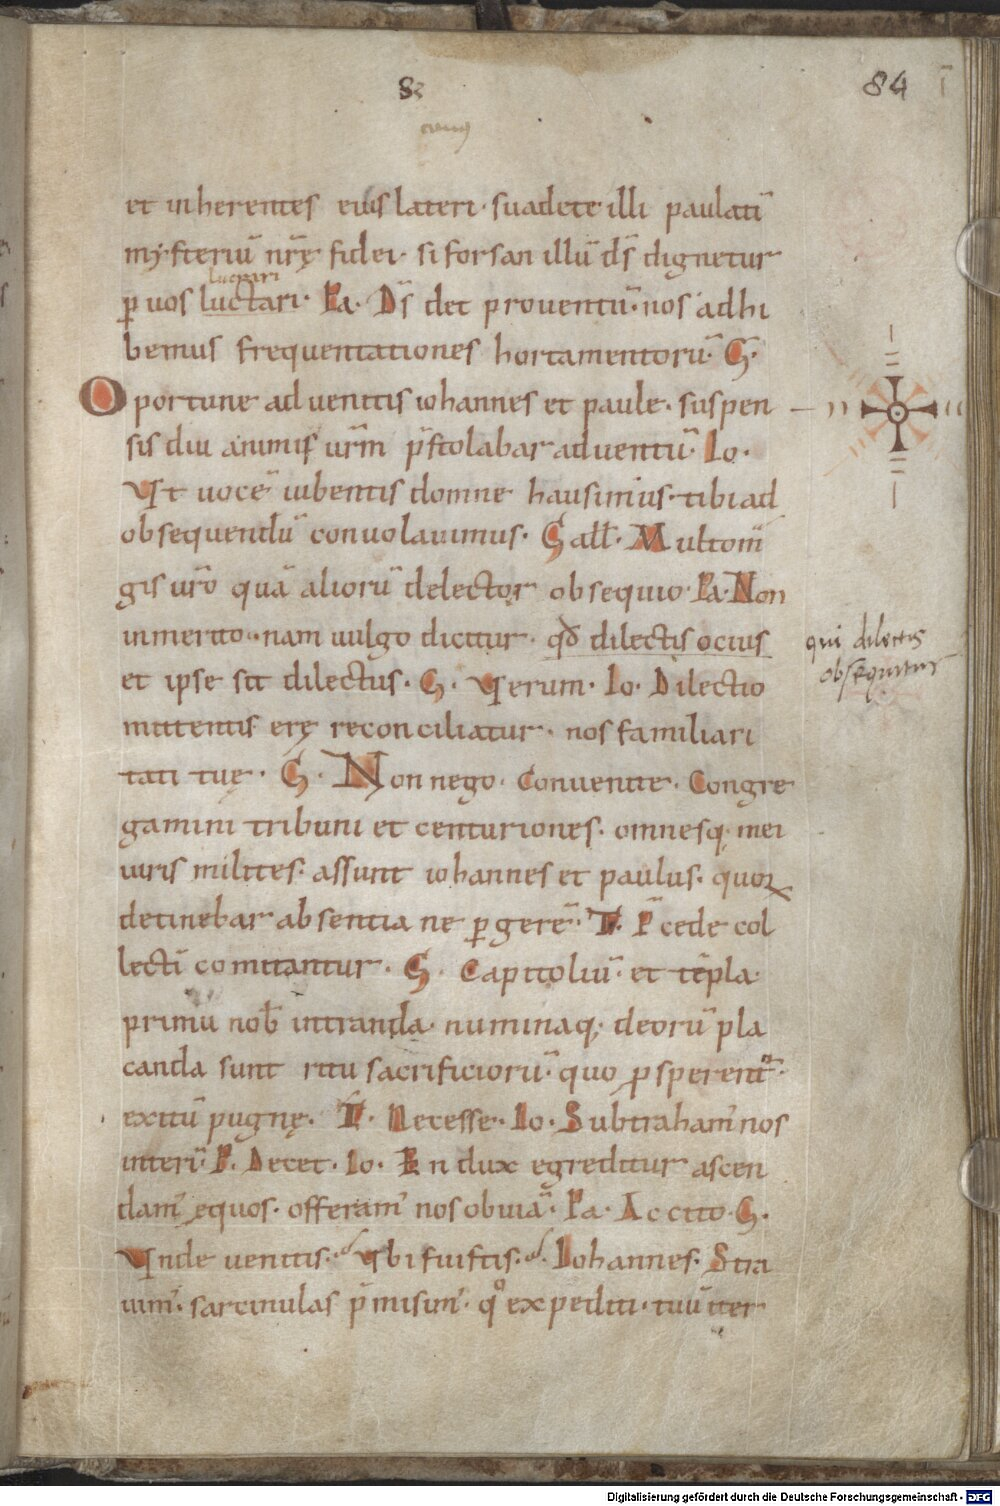 82
84
et inherentes eius lateri· suadete illi paulatī
mẏsteriū nr̄ę fidei· si forsan illū dc̄s dignetur
lucrari
ꝑ uos luctari· Pa· Dc̄s det prouentū· nos adhi
bemus frequentationes hortamentorū· G·
Oportune aduenitis iohannes et paule· suspen
sis diu animis ur̄m p̄stolabar aduentū· Io·
Vt uocē iubentis domne hausimus· tibi ad
obsequendū conuolauimus· Gall̄· Multo m̄
gis ur̄o quā aliorū delector obsequio· Pa· Non
inmerito· nam uulgo dicitur· qđ dilectis ocius
qui dilectis
obsequitur
et ipse sit dilectus· G· Verum· Io· Dilectio
mittentis erę reconciliatur· nos familiari
tati tuę· G· Non nego· Conuenite· Congre
gamini tribuni et centuriones· omnesq; mei
iuris milites· assunt iohannes et paulus· quoꝝ
detinebar absentia ne ꝑgerē· T· P̄cede col
lecti comitantur· G· Capitoliū· et tēpla·
primū nob̄ intranda· numinaq; deorū pla
canda sunt ritu sacrificiorū· quo ꝓsperent̄·
exitū pugnę· T· Necesse· Io· Subtraham̄ nos
interī· P· Decet· Io· En dux egreditur ascen
dam̄ equos· offeram̄ nos obuiā· Pa· Accito· G·
Vnde uenitis· Vbi fuistis· Iohannes· Stra
uim̄· sarcinulas p̄misim̄· qͦ expediti· tuū iter
Digitalisierung gefördert durch die Deutsche Forschungsgemeinschaft - DFG